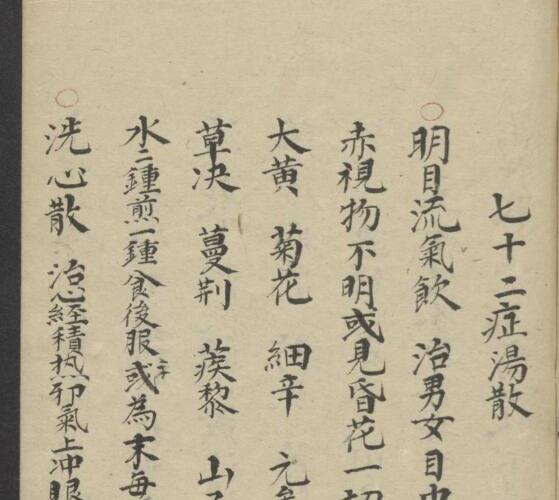 七十二症湯散
明目流氣飲 治男女目
赤視物不明或見昏花一
大黃 菊花 細辛 元
草决 蔓荆 蒺黎 山
水二鍾煎一鍾食後服或為末每
洗心散 治心經積热氣上冲眼